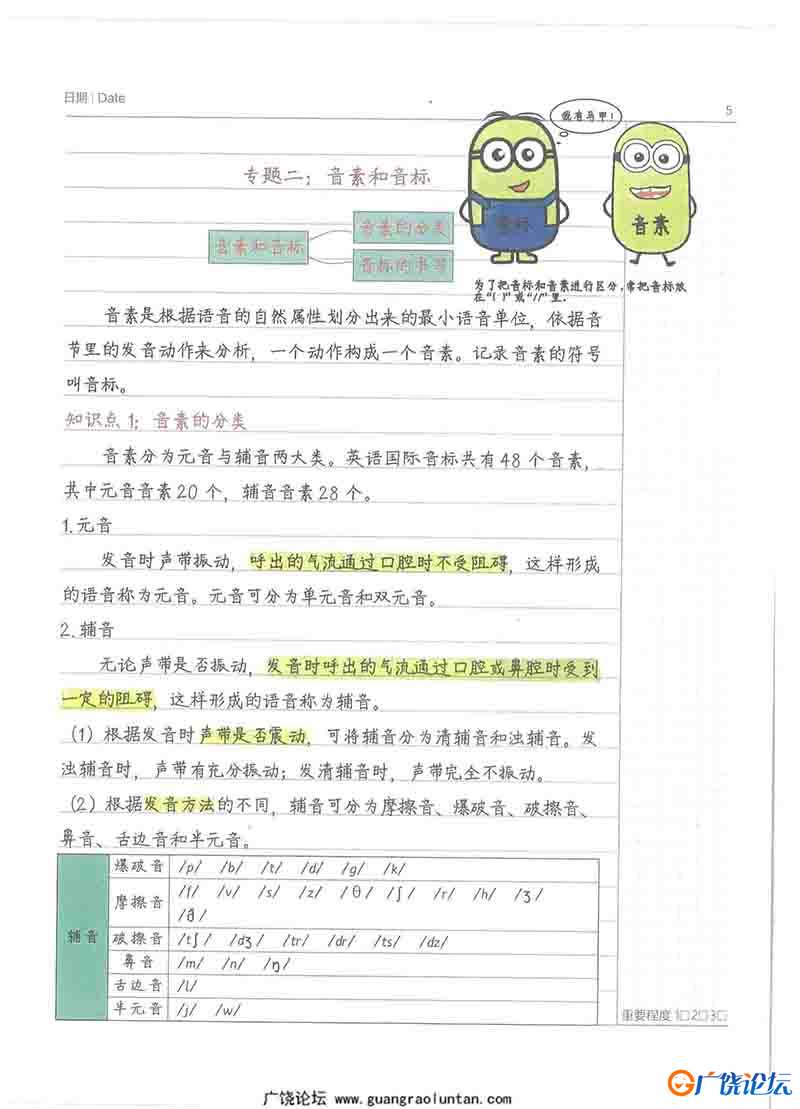 日期 | Date
5
我有马甲！
专题二：音素和音标
音标
音素
音素和音标
音素的分类
音标的书写
为了把音标和音素进行区分，常把音标放
在“[ ]”或“//”里．
音素是根据语音的自然属性划分出来的最小语音单位，依据音
节里的发音动作来分析，一个动作构成一个音素。记录音素的符号
叫音标。
知识点1：音素的分类
音素分为元音与辅音两大类。英语国际音标共有48个音素，
共中元音音素20个，辅音音素28个。
1.元音
发音时声带振动，呼出的气流通过口腔时不受阻碍，这样形成
的语音称为元音。元音可分为单元音和双元音。
2.辅音
无论声带是否振动，发音时呼出的气流通过口腔或鼻腔时受到
一定的阻碍，这样形成的语音称为辅音。
（1）根据发音时声带是否震动，可将辅音分为清辅音和浊辅音。发
浊辅音时，声带有充分振动；发清辅音时，声带完全不振动。
（2）根据发音方法的不同，辅音可分为摩擦音、爆破音、破擦音、
鼻音、舌边音和半元音。
辅音
爆破音 /p/ /b/ /t/ /d/ /g/ /k/
摩擦音 /f/ /v/ /s/ /z/ /θ/ /ʃ/ /r/ /h/ /ʒ/
/ð/
破擦音 /tʃ/ /dʒ/ /tr/ /dr/ /ts/ /dz/
鼻音 /m/ /n/ /ŋ/
舌边音 /l/
半元音 /j/ /w/
重要程度 1□2□3□
广饶论坛
广饶论坛 www.guangraoluntan.com